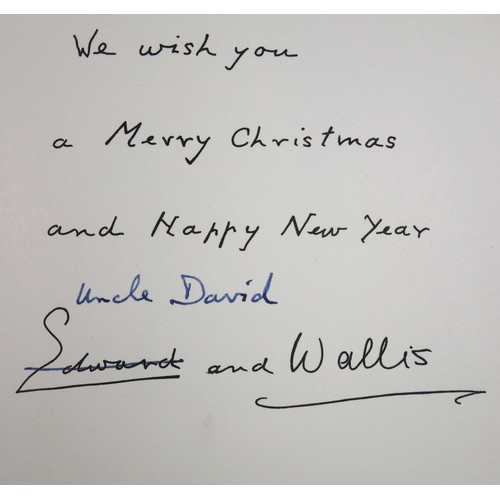 We wish you
a Merry Christmas
and Happy New Year
Uncle David
Edward and Wallis